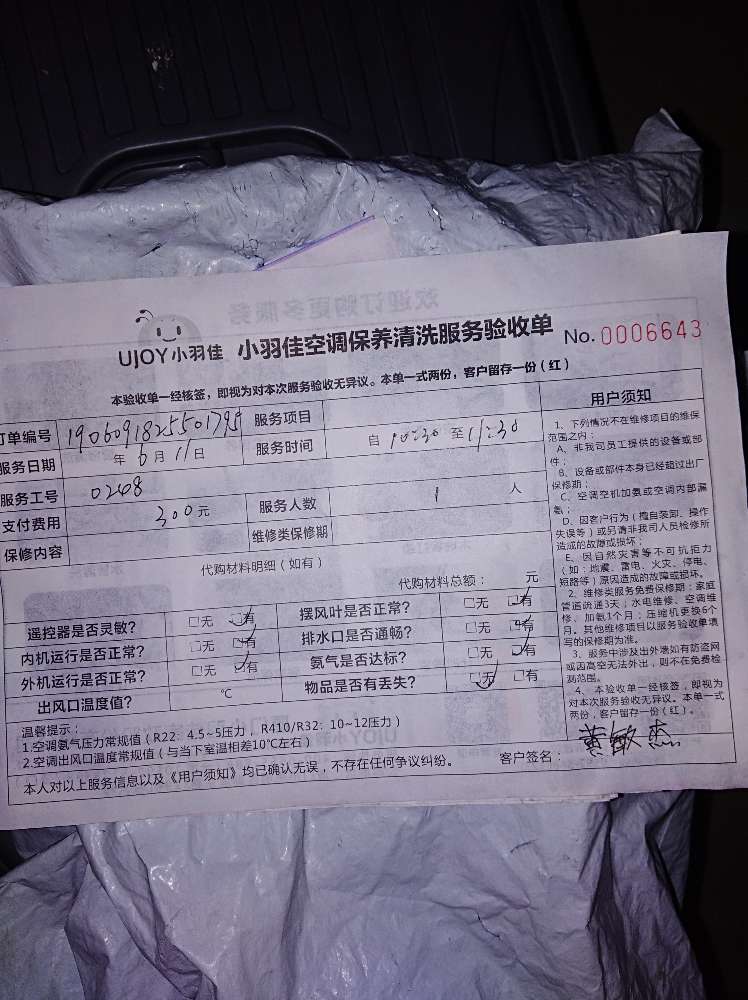 欢迎订购更多服务
UJOY小羽佳 小羽佳空调保养清洗服务验收单 No. 0006643
本验收单一经核签，即视为对本次服务验收无异议。本单一式两份，客户留存一份（红）
订单编号 1906091825501795 服务项目
服务日期 年 6 月 11 日 服务时间 自 10:30 至 11:30
服务工号 0268
支付费用 300 元 服务人数 1 人
保修内容 维修类保修期
代购材料明细（如有）
代购材料总额： 元
遥控器是否灵敏？ □无 □有 摆风叶是否正常？ □无 □有
内机运行是否正常？ □无 □有 排水口是否通畅？ □无 □有
外机运行是否正常？ □无 □有 氨气是否达标？ □无 □有
出风口温度值？ ℃ 物品是否有丢失？ □无 □有
温馨提示：
1.空调氨气压力常规值（R22：4.5~5压力，R410/R32：10~12压力）
2.空调出风口温度常规值（与当下室温相差10℃左右）
本人对以上服务信息以及《用户须知》均已确认无误，不存在任何争议纠纷。 客户签名： 黄敏杰
用户须知
1、下列情况不在维修项目的维保
范围之内：
A、非我司员工提供的设备或部
件；
B、设备或部件本身已经超过出厂
保修期；
C、空调空机加氨或空调内部漏
氨；
D、因客户行为（擅自装卸、操作
失误等）或另请非我司人员检修所
造成的故障或损坏；
E、因自然灾害等不可抗拒力
（如：地震、雷电、火灾、停电、
短路等）原因造成的故障或损坏。
2、维修类服务免费保修期：家庭
管道疏通3天；水电维修、空调维
修、加氨1个月；压缩机更换6个
月。其他维修项目以服务验收单填
写的保修期为准。
3、服务中涉及出外墙如有防盗网
或因高空无法外出，则不在免费检
测范围。
4、本验收单一经核签，即视为
对本次服务验收无异议。本单一式
两份，客户留存一份（红）。